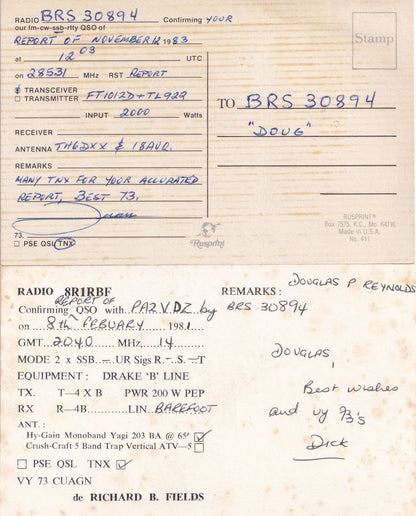 RADIO BRS 30894 Confirming YOUR
our fm-cw-ssb-rtty QSO of
REPORT OF NOVEMBER 12 1983
at 12 03 UTC
on 28531 MHz RST REPORT
TRANSCEIVER
TRANSMITTER FT101ZD+TL922
INPUT 2000 Watts
RECEIVER
ANTENNA TH6DXX & 18AVQ.
REMARKS
MANY TNX FOR YOUR ACCURATED
REPORT, BEST 73.
73,
PSE QSL TNX
Rusprint
Stamp
TO BRS 30894
"DOUG"
RUSPRINT®
Box 7575, K.C., Mo. 64116
Made in U.S.A.
No. 411
RADIO 8R1RBF
REPORT OF
Confirming QSO with PA2VDZ by
on 8th FEBUARY 1981
GMT 2040 MHz, 14
MODE 2 x SSB — UR Sigs R.-S.-T
EQUIPMENT: DRAKE 'B' LINE
TX. T—4 X B PWR 200 W PEP
RX R—4B LIN. BAREFOOT
ANT.:
Hy-Gain Monoband Yagi 203 BA @ 65'
Crush-Craft 5 Band Trap Vertical ATV—5
PSE QSL TNX
VY 73 CUAGN
de RICHARD B. FIELDS
REMARKS: DOUGLAS P REYNOLDS
BRS 30894
DOUGLAS,
Best wishes
and vy 73's
Dick